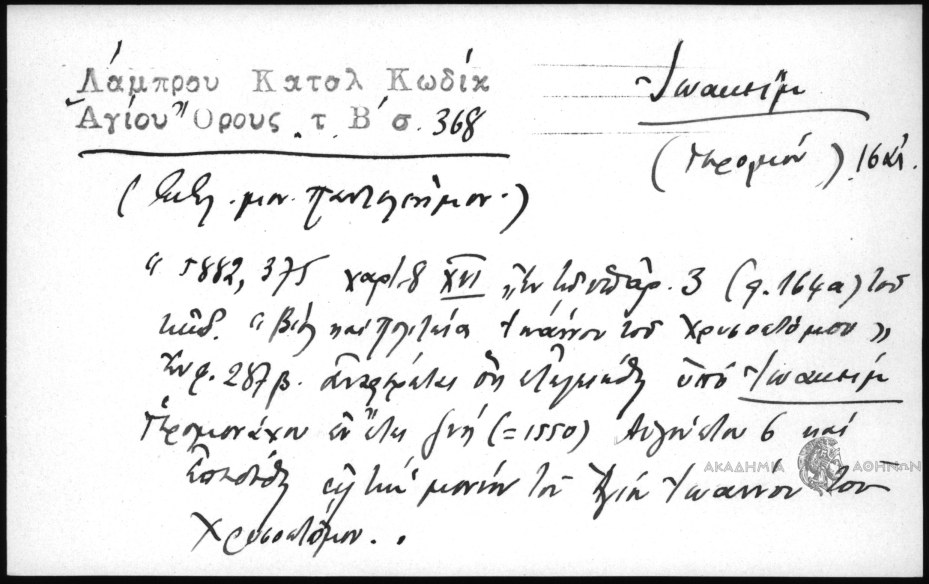 Λάμπρου Κατολ Κωδίκ
Ἁγίου Ὄρους τ. Β΄ σ. 368
Ἰωακεὶμ
(Ἱερομόν) 16 αἰ.
(Ἐκκλ. μον. Παντελεήμον.)
" 5882, 375 χαρτ. 8 XVI Ἐν τῷ ὑπ' ἀρ. 3 (φ. 164α) τοῦ
κώδ. " Βίος καὶ πολιτεία Ἰωάννου τοῦ Χρυσοστόμου "
Ἐν φ. 287β. ὅτι ὑπὸ Ἰωακεὶμ
Ἱερομονάχου ἐν ἔτει ζνή (=1550) Αὐγούστου 6 καὶ
εἰς τὴν μονὴν τοῦ Ἁγίου Ἰωάννου τοῦ
Χρυσοστόμου..
ΑΚΑΔΗΜΙΑ ΑΘΗΝΩΝ